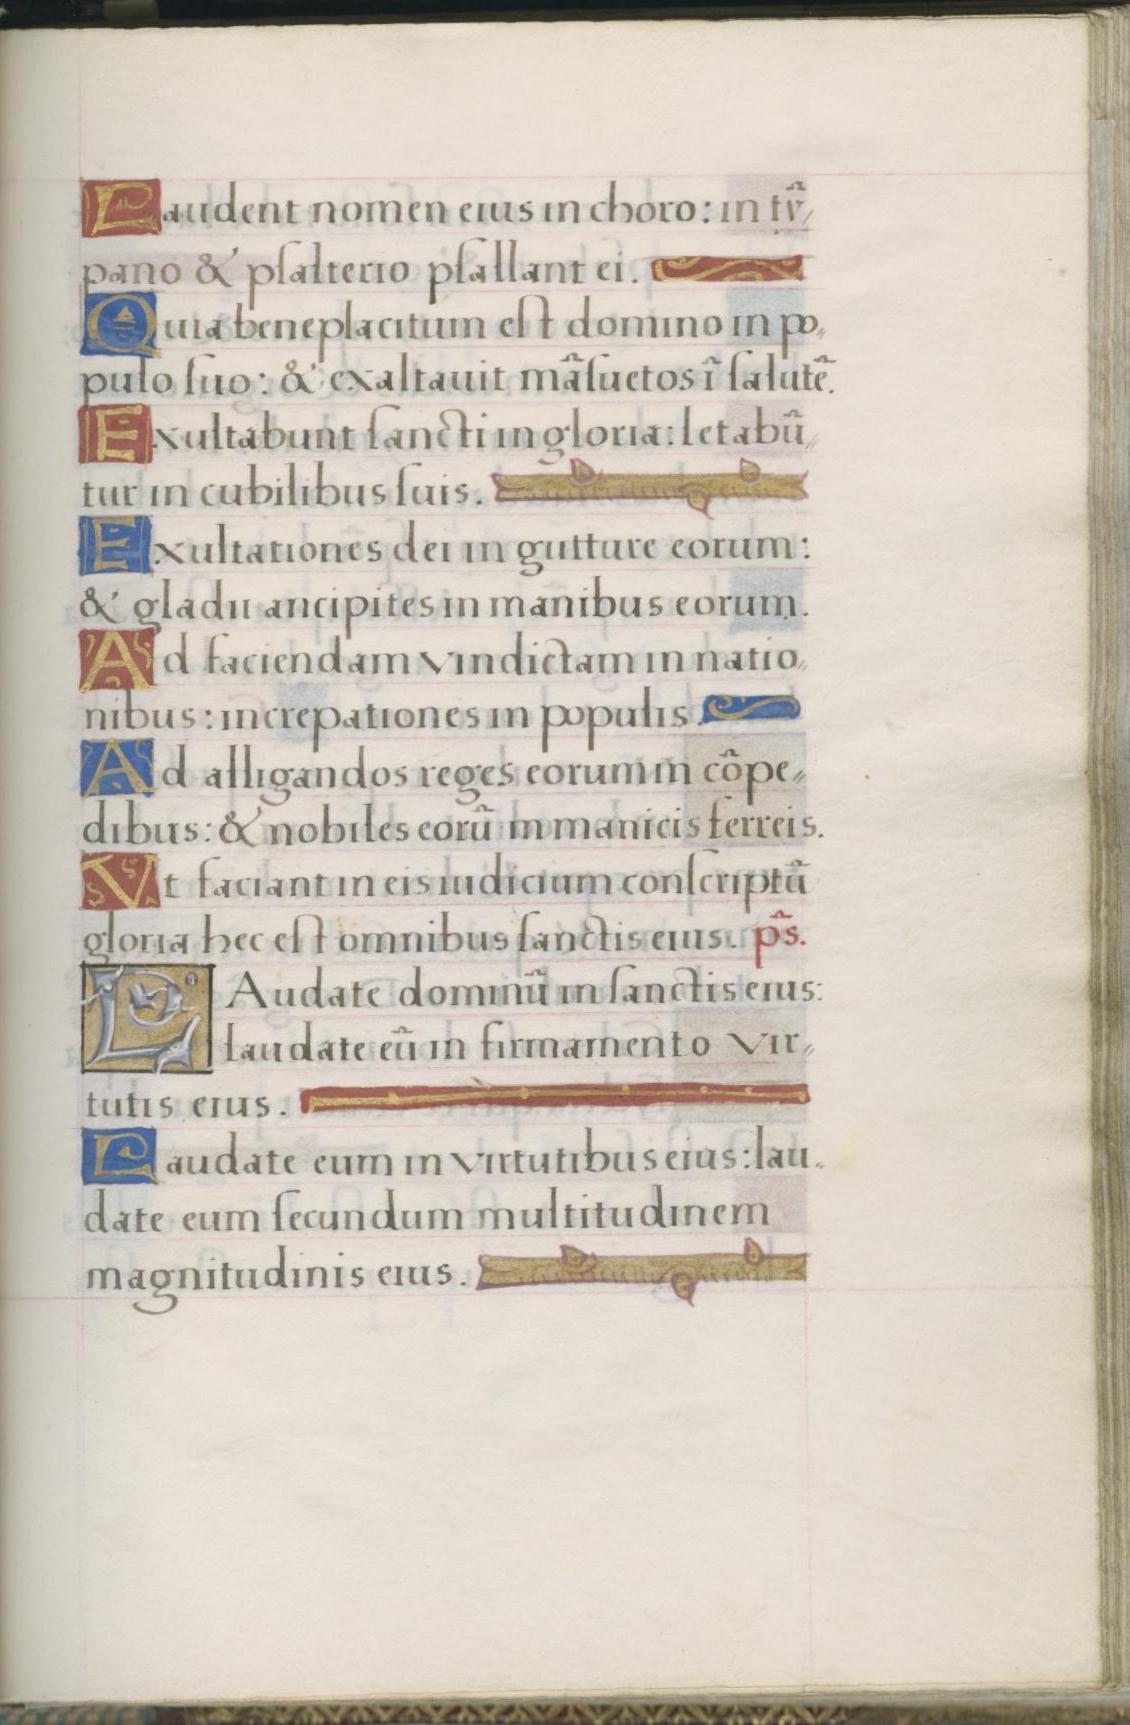 Laudent nomen eius in choro: in tỹ,,
pano & pſalterio pſallant ei.
Quia beneplacitum eſt domino in po,,
pulo ſuo: & exaltauit mãſuetos ĩ ſalutẽ.
Exultabunt ſancti in gloria: letabũ,,
tur in cubilibus ſuis.
Exultationes dei in gutture eorum:
& gladii ancipites in manibus eorum.
Ad faciendam vindictam in natio,,
nibus: increpationes in populis.
Ad alligandos reges eorum in cõpe,,
dibus: & nobiles eorũ in manicis ferreis.
Vt faciant in eis iudicium conſcriptũ
gloria hec eſt omnibus ſanctis eius. p̃s.
LAudate dominũ in ſanctis eius:
laudate eũ in firmamento vir,,
tutis eius.
Laudate eum in virtutibus eius: lau,,
date eum ſecundum multitudinem
magnitudinis eius.